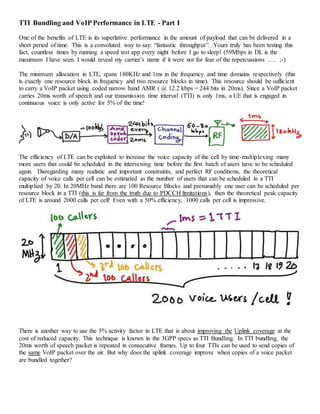 TTI Bundling and VoIP Performance in LTE - Part 1
One of the benefits of LTE is its superlative performance in the amount of payload that can be delivered in a
short period of time. This is a convoluted way to say: “fantastic throughput”. Yours truly has been testing this
fact, countless times by running a speed test app every night before I go to sleep! (59Mbps in DL is the
maximum I have seen. I would reveal my carrier’s name if it were not for fear of the repercussions …. ;-)
The minimum allocation in LTE, spans 180KHz and 1ms in the frequency and time domains respectively (this
is exactly one resource block in frequency and two resource blocks in time). This resource should be sufficient
to carry a VoIP packet using coded narrow band AMR ( @ 12.2 kbps ~ 244 bits in 20ms). Since a VoIP packet
carries 20ms worth of speech and our transmission time interval (TTI) is only 1ms, a UE that is engaged in
continuous voice is only active for 5% of the time!
D/A
~100kb/s
AMR Speech Coder
244 bits every 20ms
Channel Coding
50-80 kbps
RF
1ms
180kHz
The efficiency of LTE can be exploited to increase the voice capacity of the cell by time-multiplexing many
more users that could be scheduled in the intervening time before the first batch of users have to be scheduled
again. Disregarding many realistic and important constraints, and perfect RF conditions, the theoretical
capacity of voice calls per cell can be estimated as the number of users that can be scheduled in a TTI
multiplied by 20. In 20MHz band there are 100 Resource Blocks and presumably one user can be scheduled per
resource block in a TTI (this is far from the truth due to PDCCH limitations), then the theoretical peak capacity
of LTE is around 2000 calls per cell! Even with a 50% efficiency, 1000 calls per cell is impressive.
100 callers
1ms = 1 TTI
20 MHz
1
17 18 19 20
3rd 100 callers
2nd 100 callers
2000 voice users/cell!
There is another way to use the 5% activity factor in LTE that is about improving the Uplink coverage at the
cost of reduced capacity. This technique is known in the 3GPP specs as TTI Bundling. In TTI bundling, the
20ms worth of speech packet is repeated in consecutive frames. Up to four TTIs can be used to send copies of
the same VoIP packet over the air. But why does the uplink coverage improve when copies of a voice packet
are bundled together?